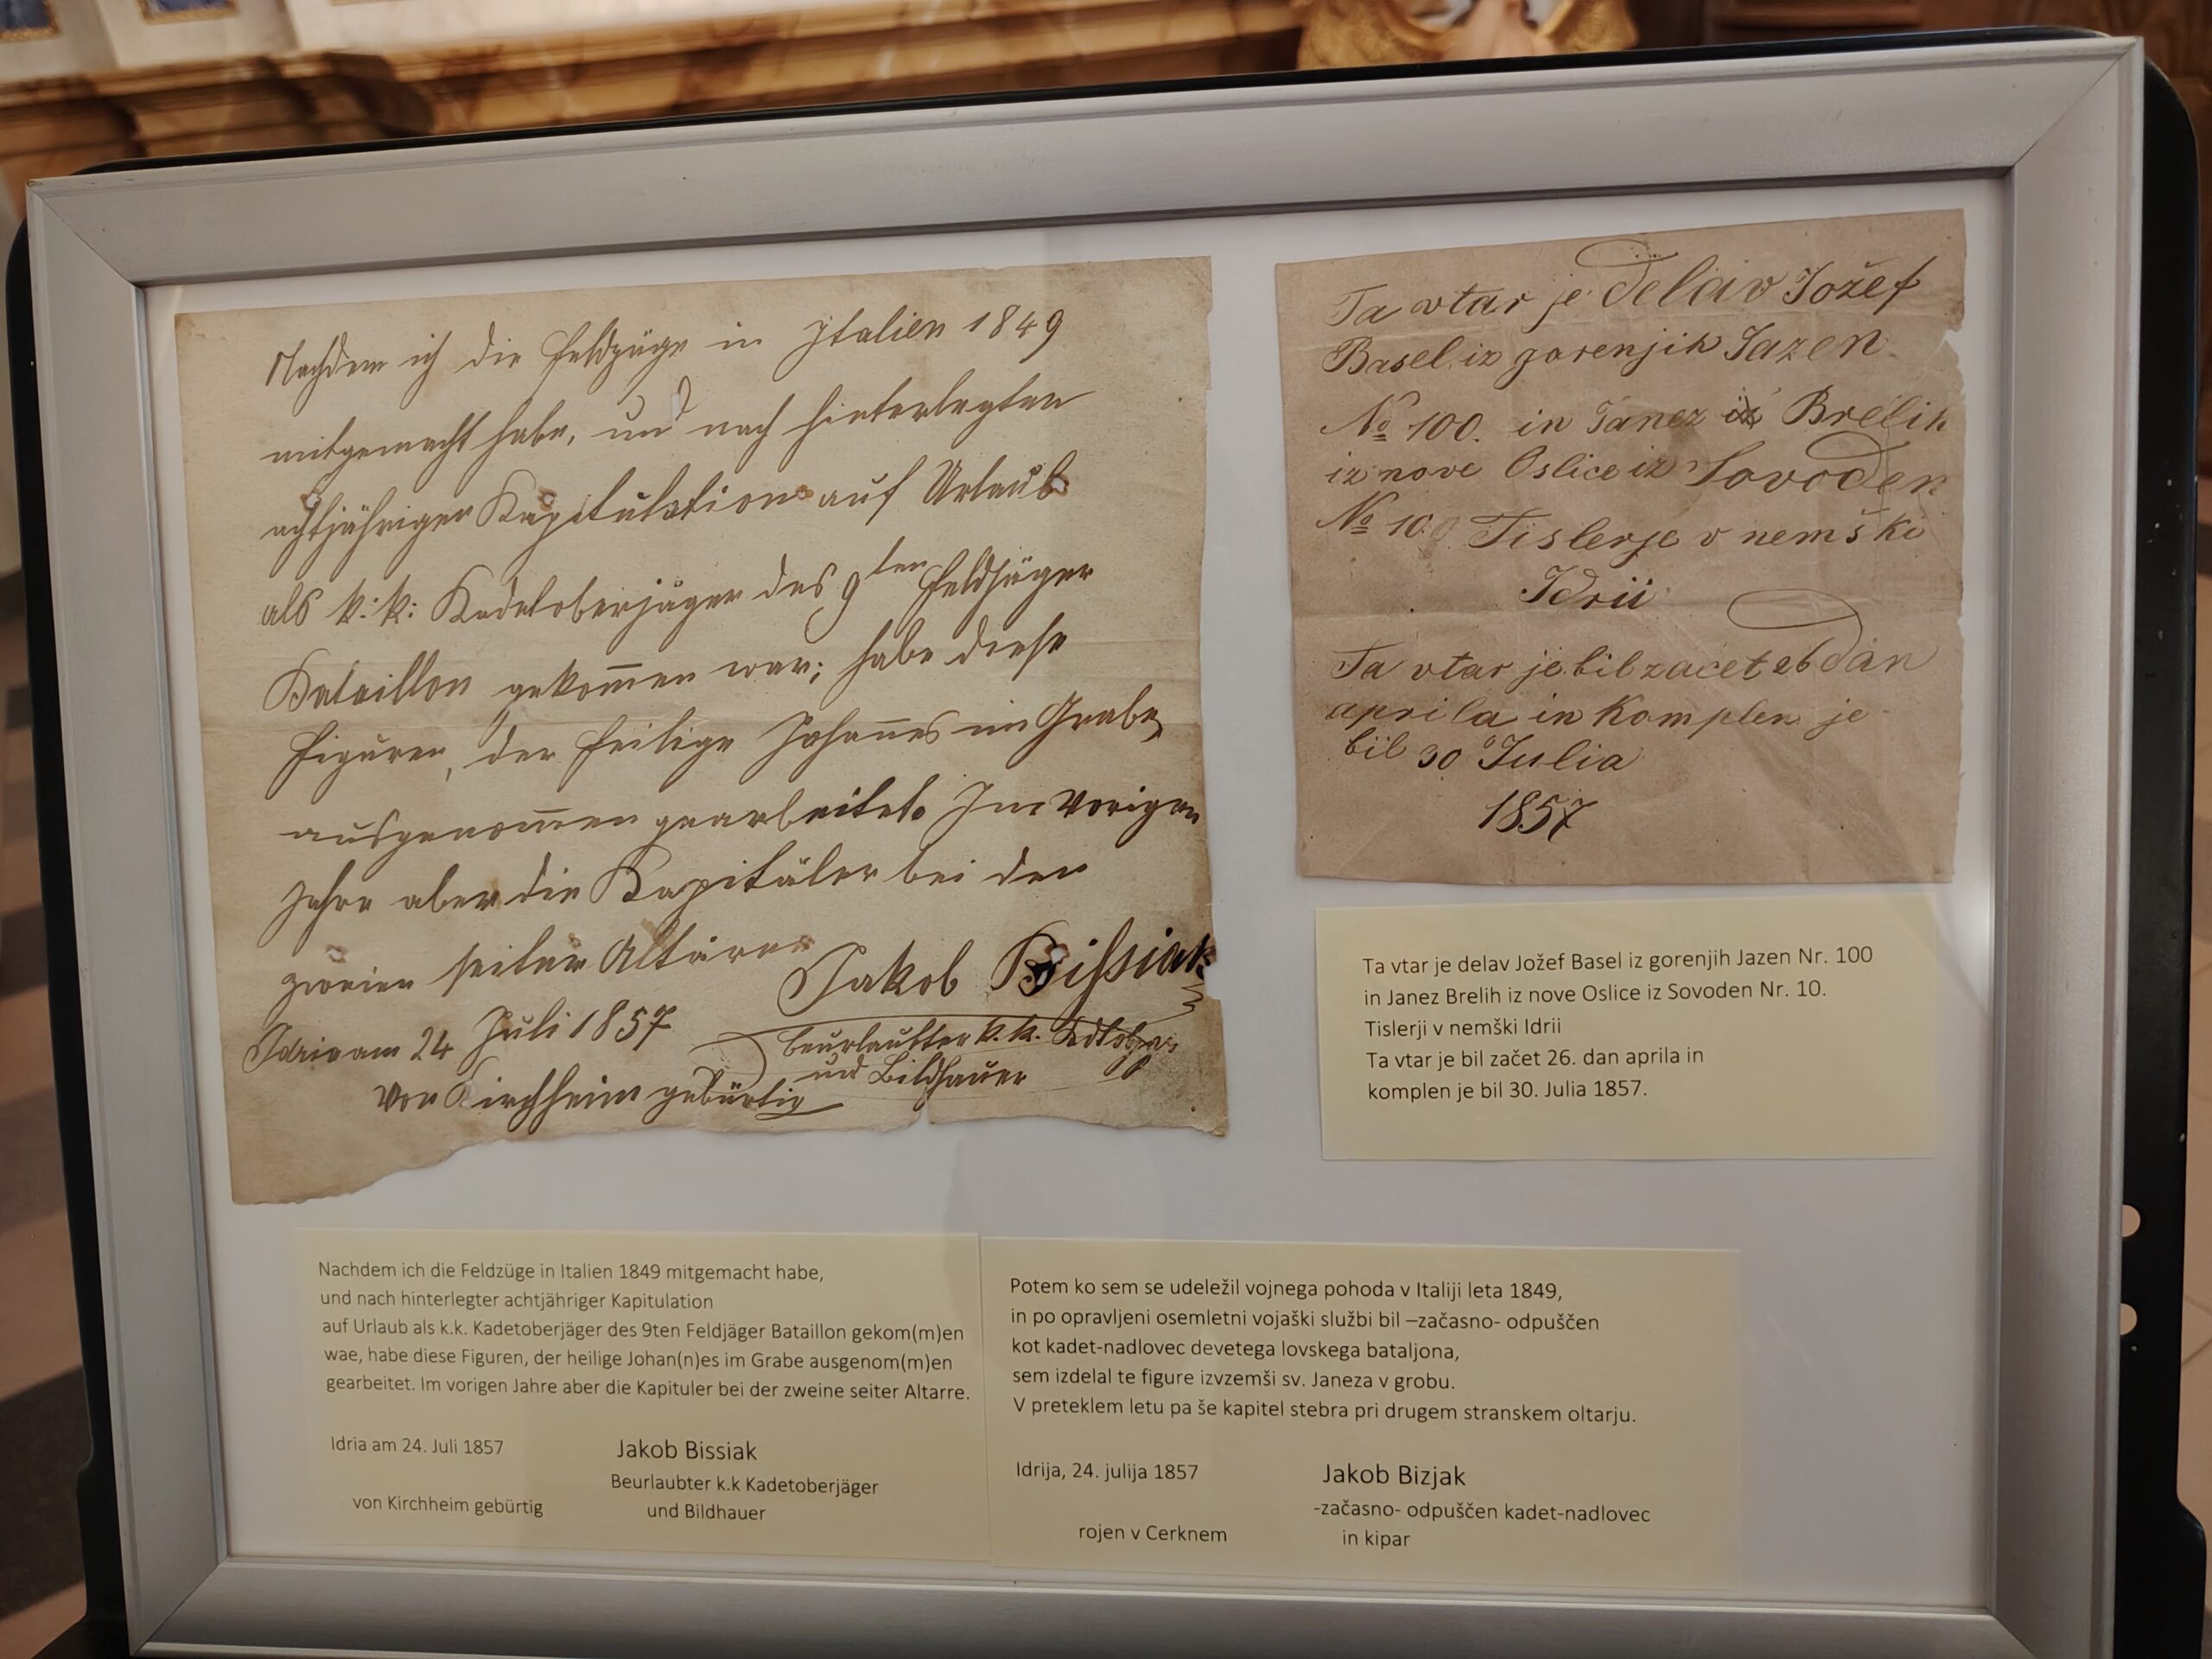 Nachdem ich die Feldzüge in Italien 1849
mitgemacht habe, und nach hinterlegten
achtjähriger Kapitulation auf Urlaub
als k: k: Kadetoberjäger des 9ten Feldjäger
Bataillon gekom̅en war; habe diese
Figuren, der heilige Johan̅es im Grabe,
ausgenom̅en gearbeitet. Im vorigen
Jahre aber die Kapitäler bei der
zweien seiter Altären
Jakob Bissiak
Idria am 24 Juli 1857
beurlaubter k. k.
und Bildhauer
von Kirchheim gebürtig
Ta vtar je delav Jožef
Basel iz gorenjih Jazen
No 100. in Janez iz Brelih
iz nove Oslice iz Sovoden
No 10 Tislerje v nemški
Idrii
Ta vtar je bil začet 26 dan
aprila in komplen je
bil 30 Julia
1857
Ta vtar je delav Jožef Basel iz gorenjih Jazen Nr. 100
in Janez Brelih iz nove Oslice iz Sovoden Nr. 10.
Tislerji v nemški Idrii
Ta vtar je bil začet 26. dan aprila in
komplen je bil 30. Julia 1857.
Nachdem ich die Feldzüge in Italien 1849 mitgemacht habe,
und nach hinterlegter achtjähriger Kapitulation
auf Urlaub als k.k. Kadetoberjäger des 9ten Feldjäger Bataillon gekom(m)en
wae, habe diese Figuren, der heilige Johan(n)es im Grabe ausgenom(m)en
gearbeitet. Im vorigen Jahre aber die Kapituler bei der zweine seiter Altarre.
Idria am 24. Juli 1857
Jakob Bissiak
Beurlaubter k.k Kadetoberjäger
und Bildhauer
von Kirchheim gebürtig
Potem ko sem se udeležil vojnega pohoda v Italiji leta 1849,
in po opravljeni osemletni vojaški službi bil –začasno- odpuščen
kot kadet-nadlovec devetega lovskega bataljona,
sem izdelal te figure izvzemši sv. Janeza v grobu.
V preteklem letu pa še kapitel stebra pri drugem stranskem oltarju.
Idrija, 24. julija 1857
Jakob Bizjak
-začasno- odpuščen kadet-nadlovec
in kipar
rojen v Cerknem